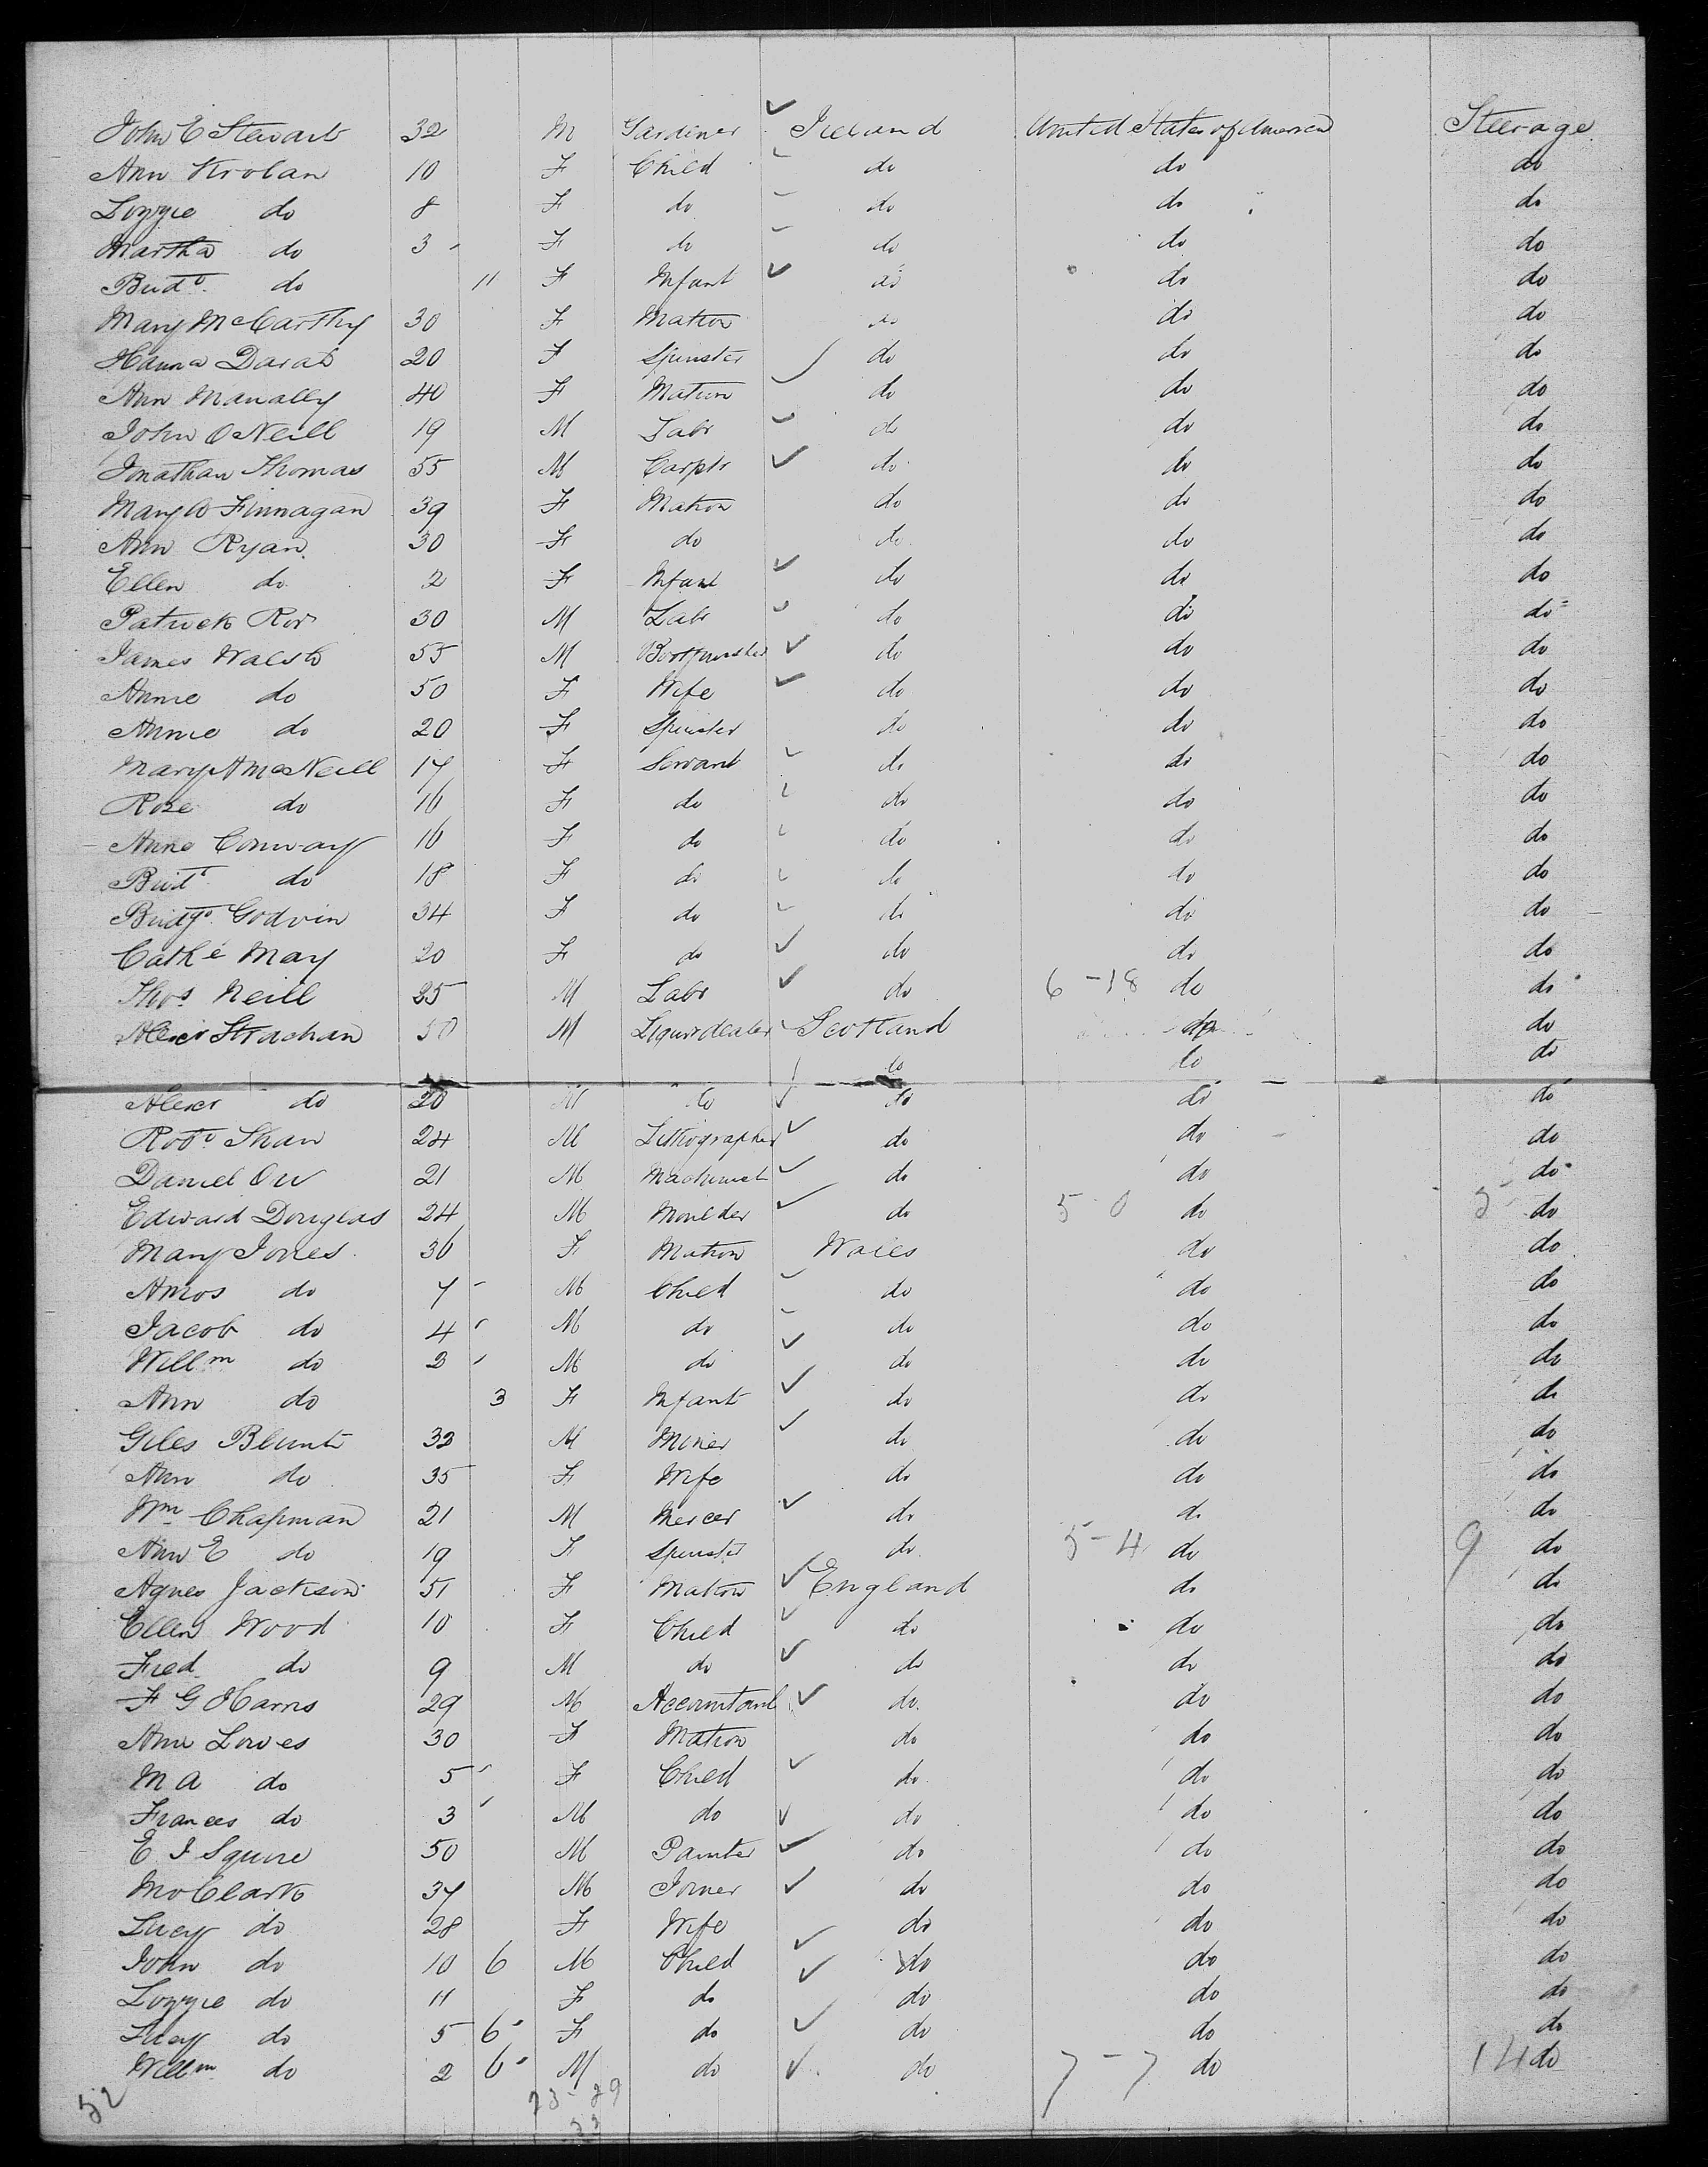 John C Stewart 32 M Gardiner Ireland United States of America Steerage
Ann 10 F Child do do do
Lizzie do 8 F do do do do
Martha do 3 F do do do do
Bridt do 11 F Infant do do do
Mary McCarthy 30 F Matron do do do
Hanna Darah 20 F Spinster do do do
Ann Manally 40 F Matron do do do
John O Neill 19 M Labr do do do
Jonathan Thomas 55 M Carptr do do do
Mary A Finnagan 39 F Matron do do do
Ann Ryan 30 F do do do do
Ellen do 2 F Infant do do do
Patrick 30 M Labr do do do
James Walsh 55 M do do do
Annie do 50 F Wife do do do
Annie do 20 F Spinster do do do
Mary A McNeill 17 F Servant do do do
Rose do 16 F do do do do
Anne Conway 16 F do do do do
Bridt do 18 F do do do do
Bridgt Godvin 34 F do do do do
Cathe May 20 F do do do do
Thos Neill 25 M Labr do 6-18 do do
Alexr Strachan 50 M Liquordealer Scotland do do
do do do
Alexr do 20 M do do do do
Robt Shaw 24 M Lithographer do do do
Daniel Orr 21 M Machinist do do do
Edward Douglas 24 M Moulder do 5 0 do 5 do
Mary Jones 36 F Matron Wales do do
Amos do 7 M Child do do do
Jacob do 4 M do do do do
Willm do 2 M do do do do
Ann do 3 F Infant do do do
Giles Blunt 32 M Miner do do do
Ann do 35 F Wife do do do
Wm Chapman 21 M Mercer do do do
Ann E do 19 F Spinster do 5-4 do 9 do
Agnes Jackson 51 F Matron England do do
Ellen Wood 10 F Child do do do
Fred do 9 M do do do do
F G Harris 29 M Accountant do do do
Ann Lowes 30 F Matron do do do
M A do 5 F Child do do do
Frances do 3 M do do do do
E J Squire 50 M Painter do do do
Jno Clark 37 M Joiner do do do
Lucy do 28 F Wife do do do
John do 10 6 M Child do do do
Lizzie do 11 F do do do do
Lucy do 5 6 F do do do do
Willm do 2 6 M do do 7-7 do 14 do
52 23-29